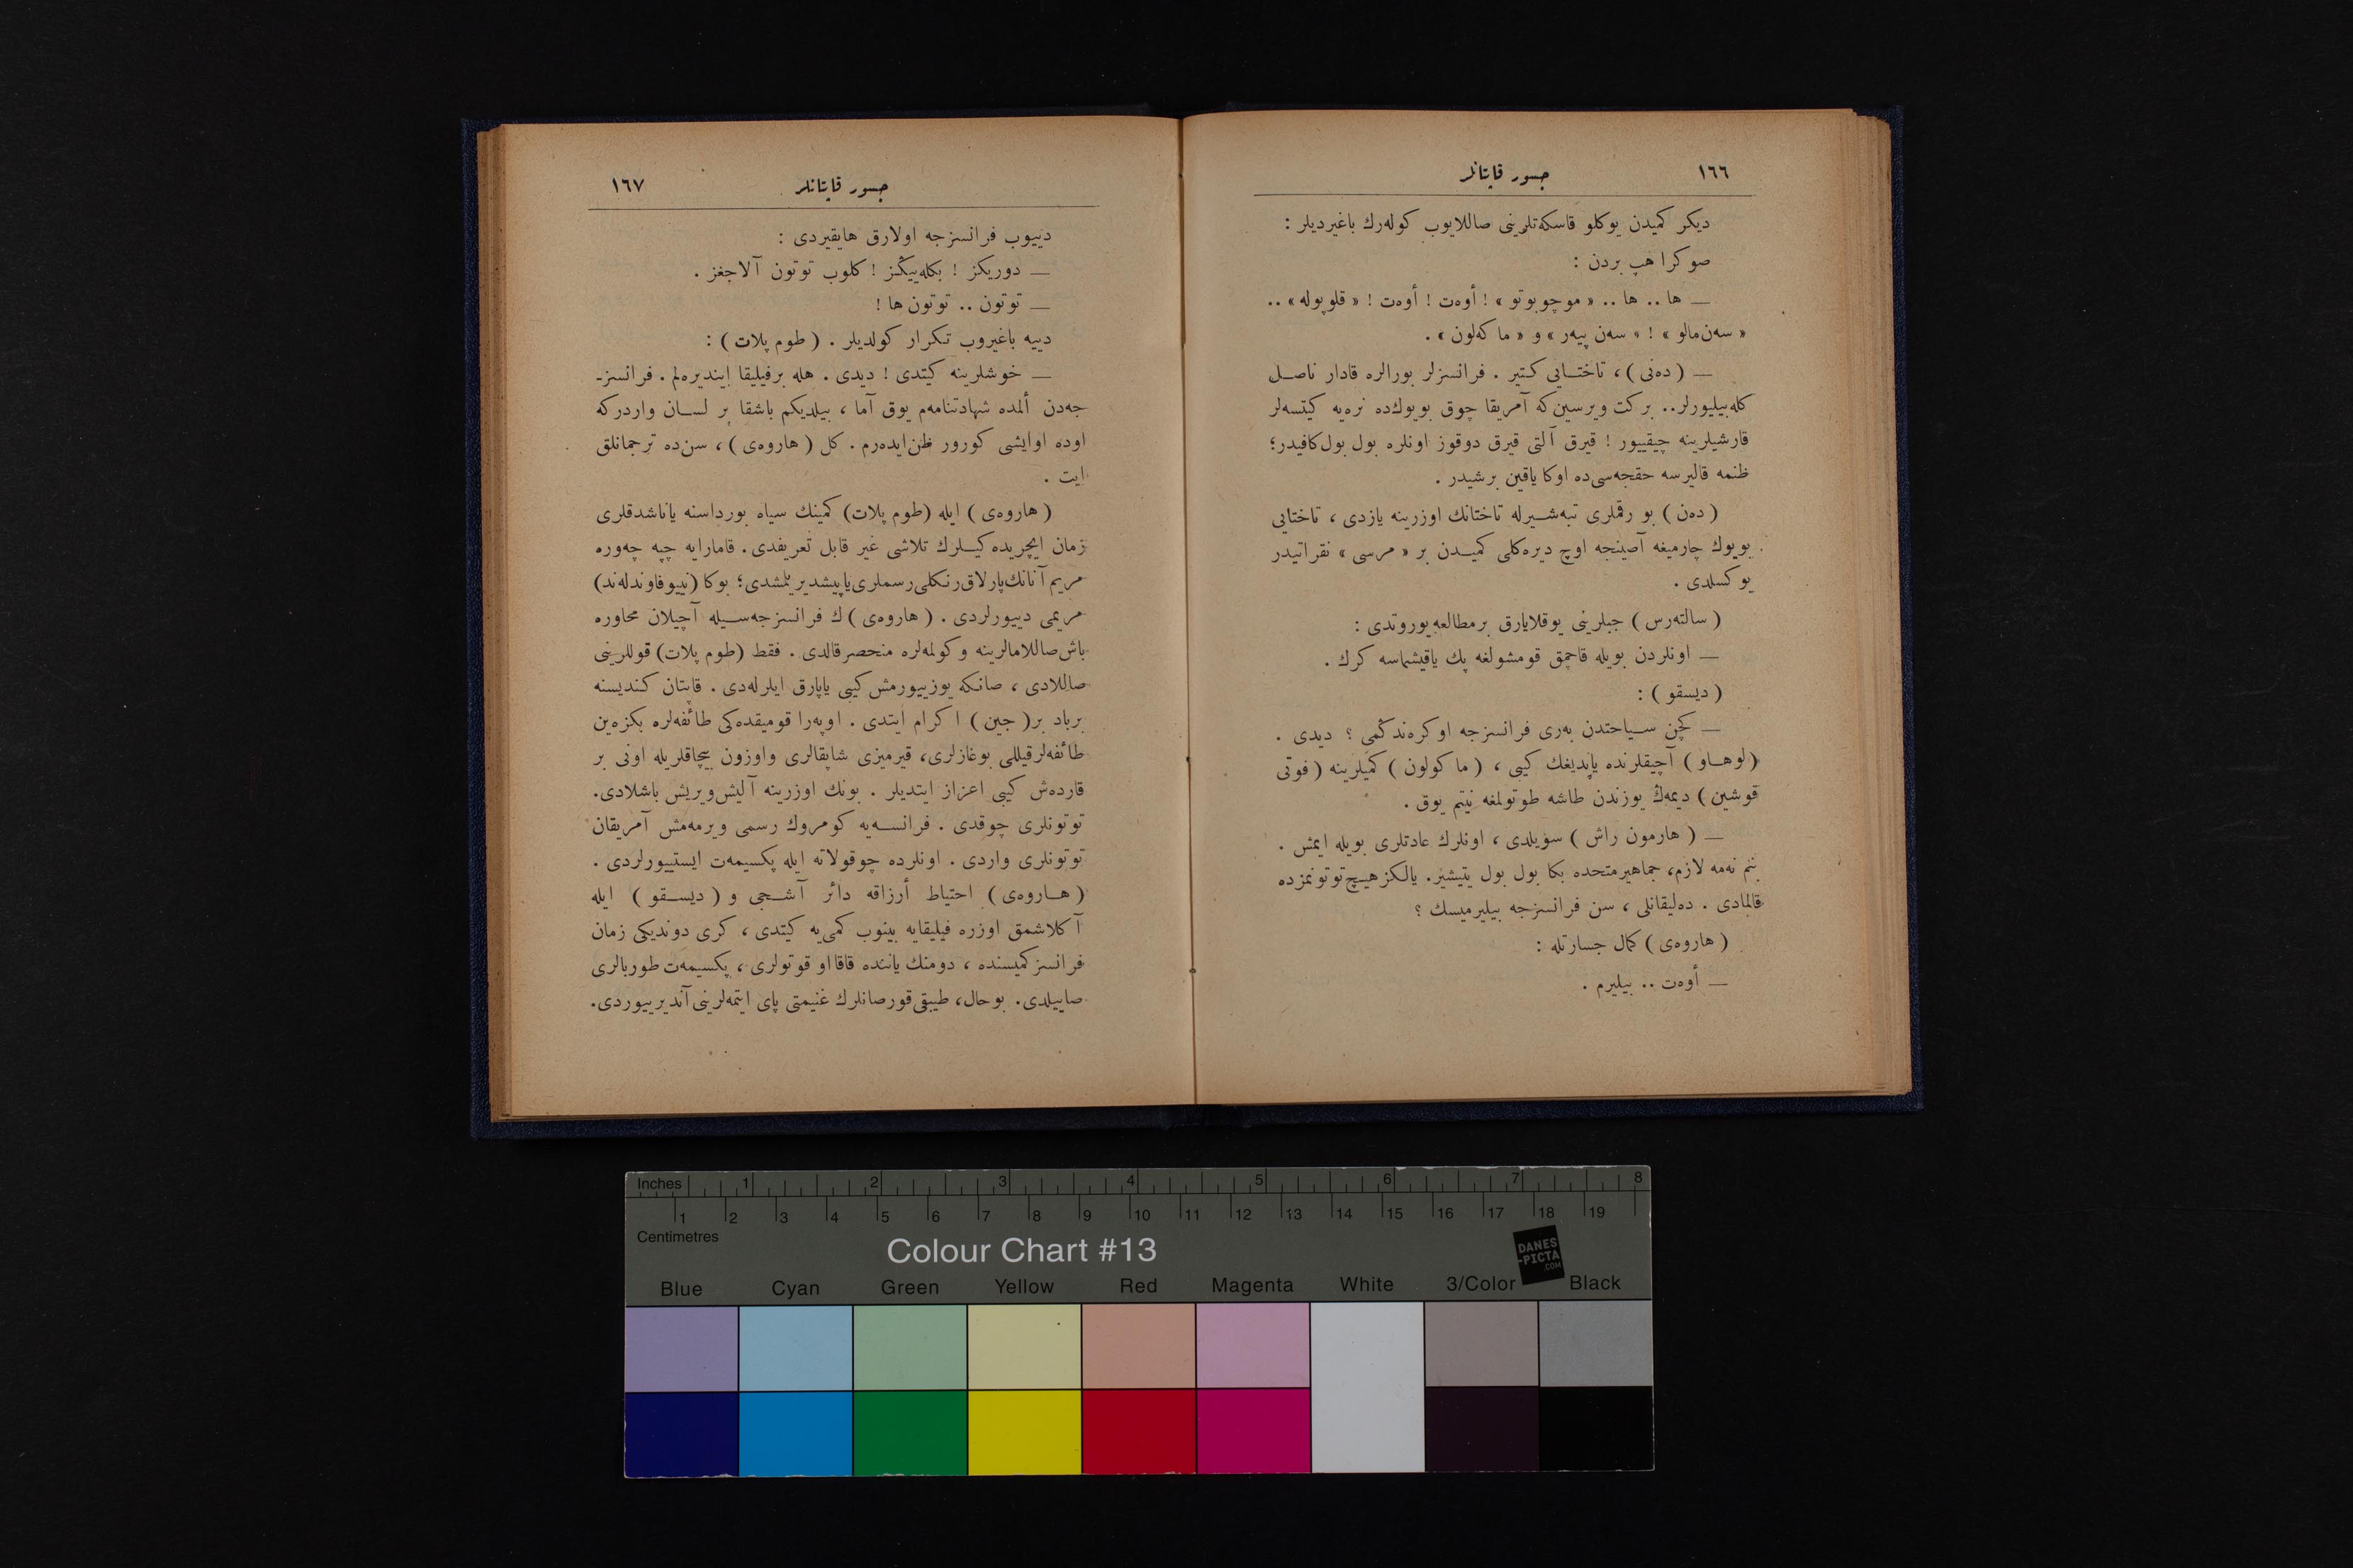 ١٦٦
جسور قاپتانلر
ديكر كميدن يوكلو قاسكه‌تلرينى صاللايوب كوله‌رك باغيرديلر :
صوكرا هپ بردن :
— ها .. ها .. « موچوبوتو » ! أوه‌ت ! أوه‌ت ! « قلوپوله » ..
« سه‌ن‌مالو » ! « سه‌ن پيه‌ر » و « ماكه‌لون » .
— ( ده‌نى ) ، تاختايى كتير . فرانسزلر بورالره قادار ناصل
كله‌بيليورلر .. بركت ويرسين‌كه آمريقا چوق بويوك‌ده نره‌يه كيتسه‌لر
قارشيلرينه چيقييور ! قيرق آلتى قيرق دوقوز اونلره بول بول كافيدر ؛
ظنمه قاليرسه حقجه‌سى‌ده اوكا ياقين برشيدر .
( ده‌ن ) بو رقملرى تبه‌شيرله تاختانك اوزرينه يازدى ، تاختايى
بويوك چارميغه آصينجه اوچ ديره‌كلى كميدن بر « مرسى » نقراتيدر
يوكسلدى .
( سالته‌رس ) جبلرينى يوقلايارق برمطالعه يوروتدى :
— اونلردن بويله قاچمق قومشولغه پك ياقيشماسه كرك .
( ديسقو ) :
— كچن سياحتدن به‌رى فرانسزجه اوكره‌ندكمى ؟ ديدى .
( لوهاو ) آچيقلرنده ياپديغك كيبى ، ( ماكولون ) كميلرينه ( فوتى
قوشين ) ديمه‌ك يوزندن طاشه طوتولمغه نيتم يوق .
— ( هارمون راش ) سويلدى ، اونلرك عادتلرى بويله ايمش .
بنم نه‌مه لازم ، جماهيرمتحده بكا بول بول يتيشير . يالكز هيچ توتونمزده
قالمادى . ده‌ليقانلى ، سن فرانسزجه بيليرميسك ؟
( هاروه‌ى ) كمال جسارتله :
— أوه‌ت .. بيليرم .
جسور قاپتانلر
١٦٧
دييوب فرانسزجه اولارق هايقيردى :
— دوريكز ! بكله‌ييڭز ! كلوب توتون آلاجغز .
— توتون .. توتون ها !
دييه باغيروب تكرار كولديلر . ( طوم پلات ) :
— خوشلرينه كيتدى ! ديدى . هله برفيليقا اينديره‌لم . فرانسز-
جه‌دن ألمده شهادتنامه‌م يوق آما ، بيلديكم باشقا بر لسان واردركه
اوده اوايشى كورور ظن‌ايده‌رم . كل ( هاروه‌ى ) ، سن‌ده ترجمانلق
ايت .
( هاروه‌ى ) ايله ( طوم پلات ) كمينك سياه بورداسنه ياناشدقلرى
زمان ايچريده كيلرك تلاشى غير قابل تعريفدى . قامارايه چپه چه‌وره
مريم آنانك پارلاق رنكلى رسملرى ياپيشديريلمشدى ؛ بوكا ( نييوفاوندله‌ند )
مريمى دييورلردى . ( هاروه‌ى ) ك فرانسزجه‌سيله آچيلان محاوره
باش صاللامالرينه و كولمه‌لره منحصر قالدى . فقط ( طوم پلات ) قوللرينى
صاللادى ، صانكه يوزييورمش كيبى ياپارق ايلرله‌دى . قاپتان كنديسنه
برباد بر ( جين ) اكرام ايتدى . اوپه‌را قوميقده‌كى طائفه‌لره بكزه‌ين
طائفه‌لر قيللى بوغازلرى ، قيرميزى شاپقالرى واوزون بيچاقلريله اونى بر
قارده‌ش كيبى اعزاز ايتديلر . بونك اوزرينه آليش‌ويريش باشلادى .
توتونلرى چوقدى . فرانسه‌يه كومروك رسمى ويرمه‌مش آمريقان
توتونلرى واردى . اونلرده چوقولاته ايله پكسيمه‌ت ايستييورلردى .
( هاروه‌ى ) احتياط أرزاقه دائر آشجى و ( ديسقو ) ايله
آكلاشمق اوزره فيليقايه بينوب كمى‌يه كيتدى ، كرى دونديكى زمان
فرانسز كميسنده ، دومنك ياننده قاقااو قوتولرى ، پكسيمه‌ت طوربالرى
صاييلدى . بوحال ، طبقى قورصانلرك غنيمتى پاى ايتمه‌لرينى آنديرييوردى .
Inches 1 2 3 4 5 6 7 8
1 2 3 4 5 6 7 8 9 10 11 12 13 14 15 16 17 18 19
Centimetres
Colour Chart #13
DANES
-PICTA
.COM
Blue Cyan Green Yellow Red Magenta White 3/Color Black